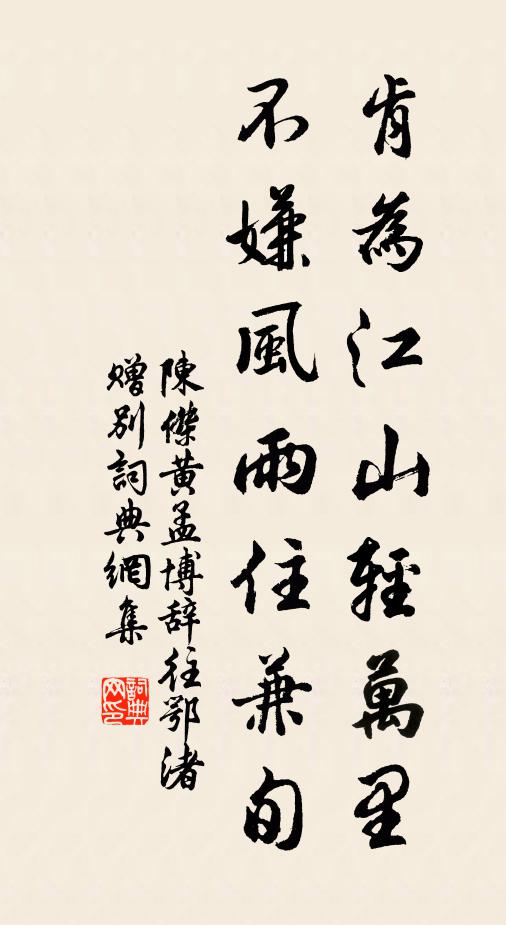 肯為江山輕萬里
不嫌風雨住兼旬
陳傑黄孟博辞往鄂渚
贈别詞典網集
詞典
网印